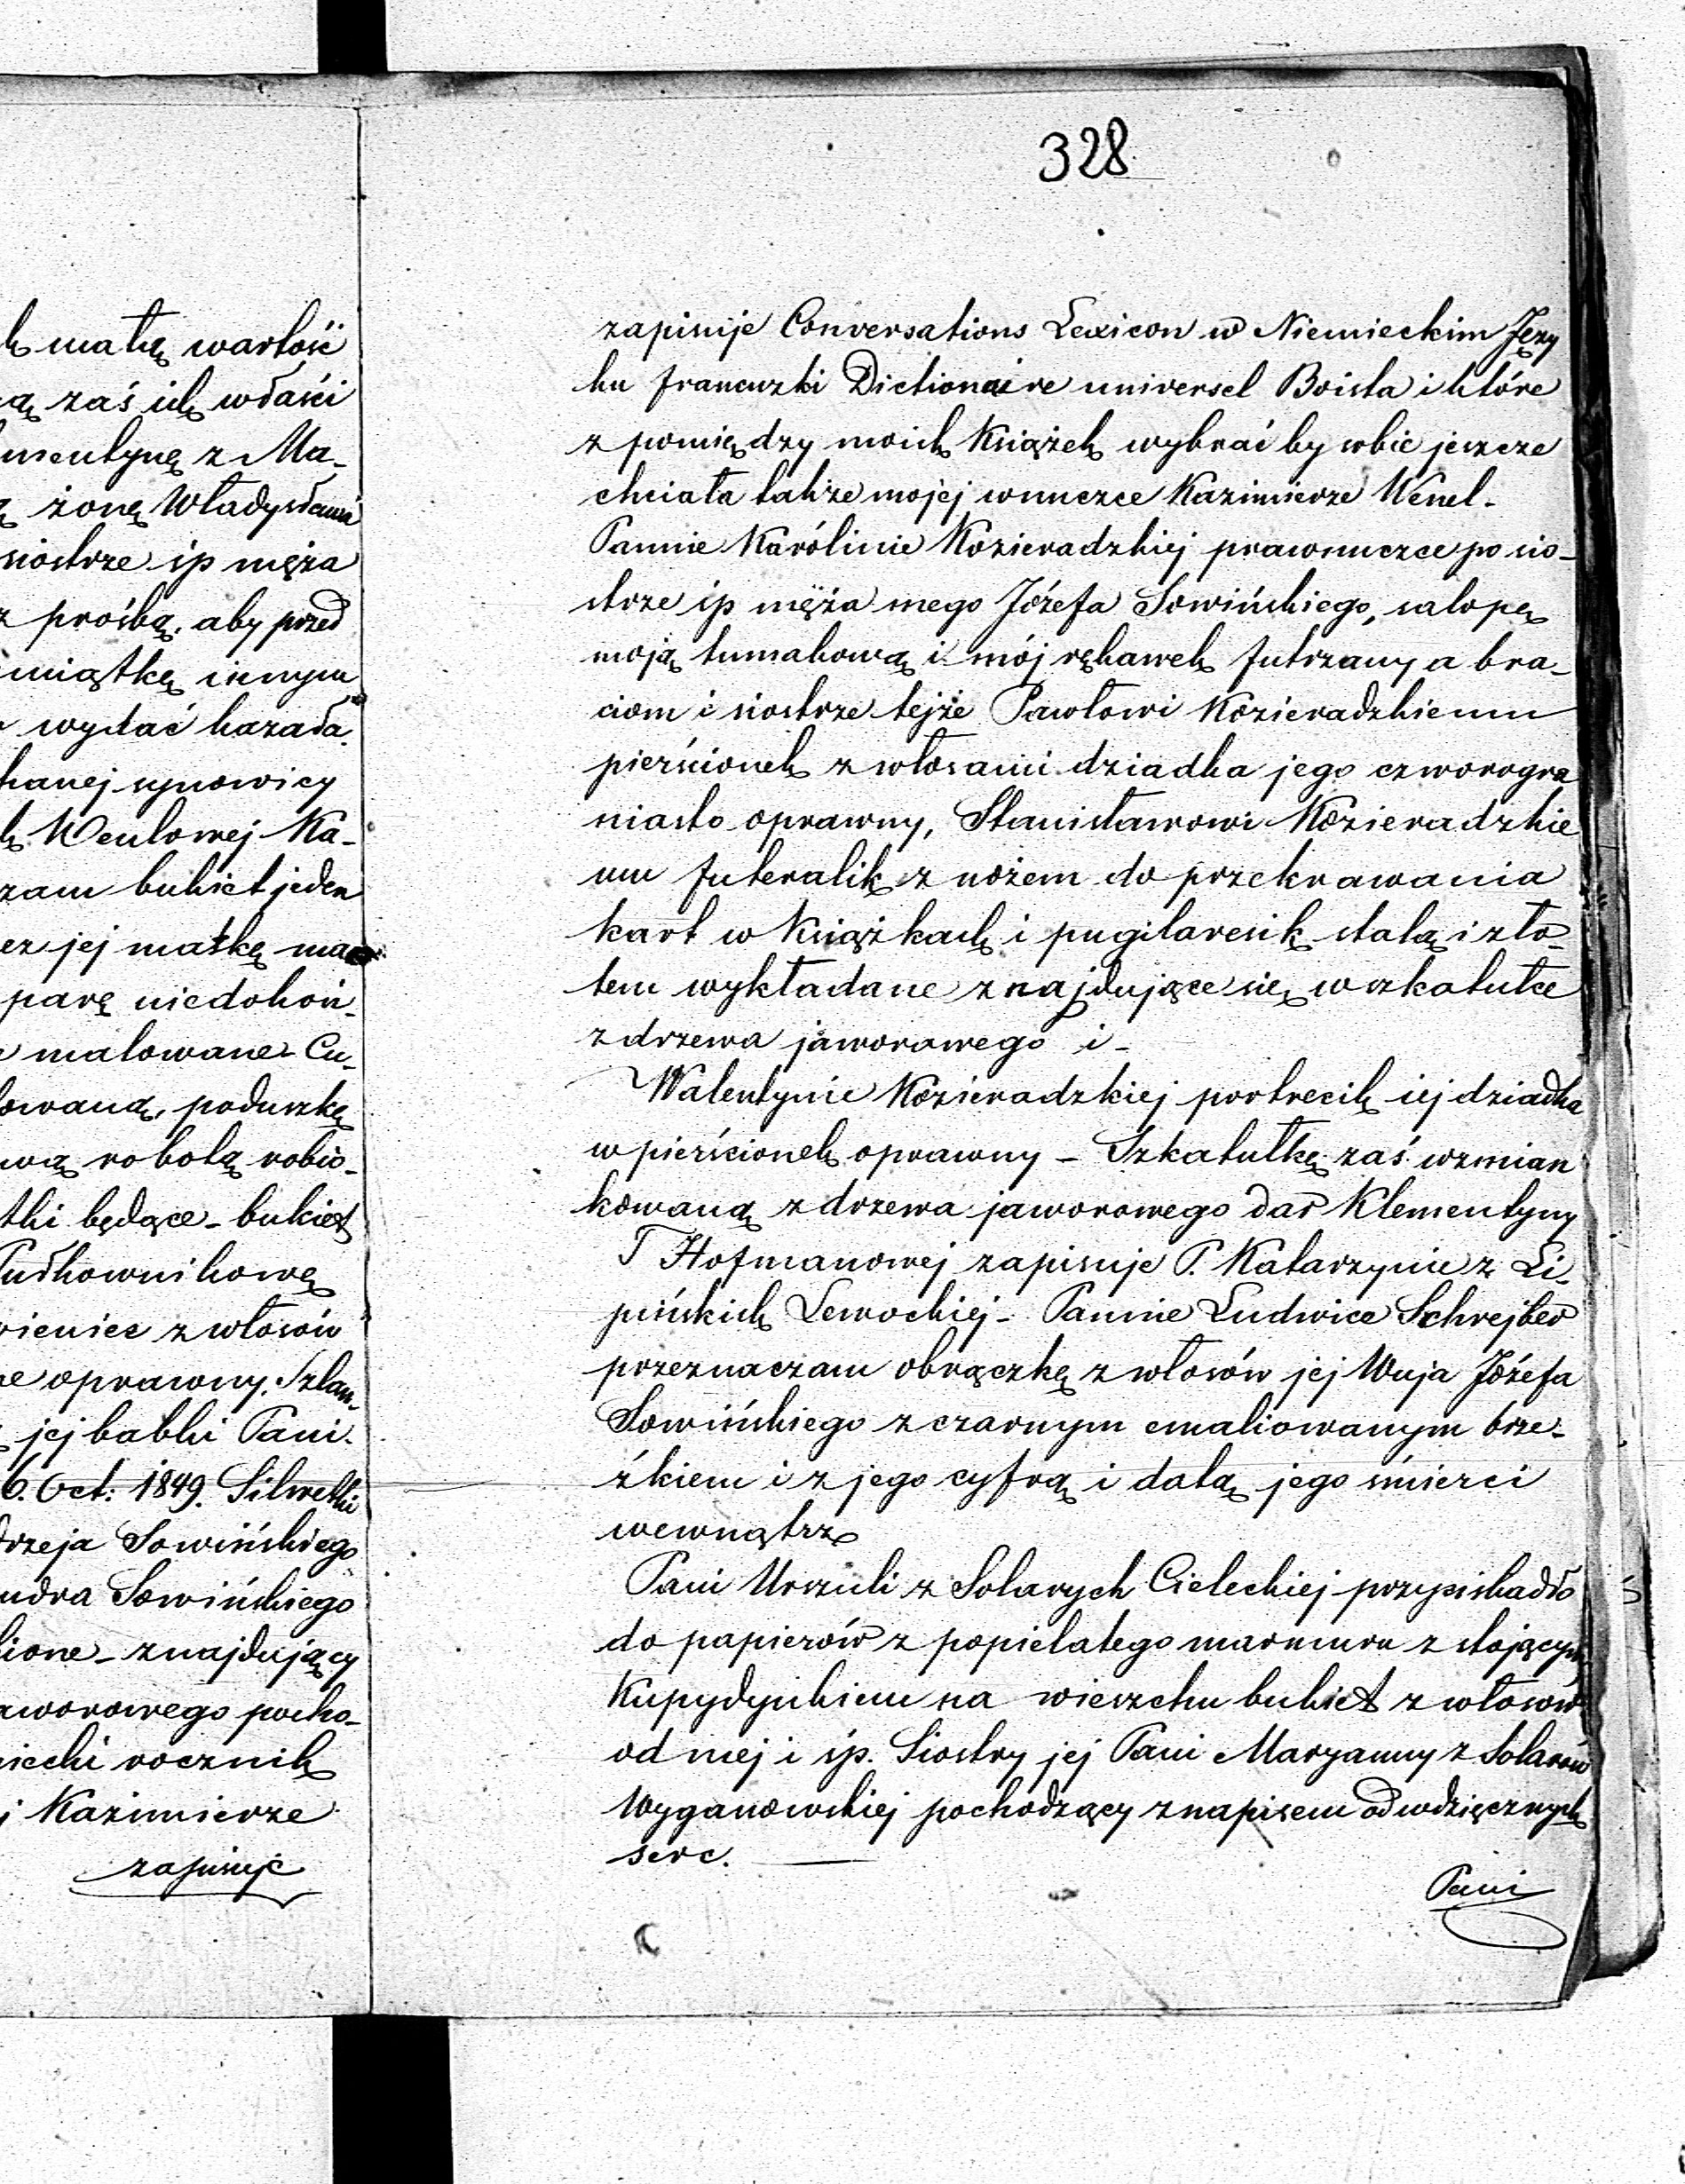 328
małą wartość
zaś ich właści
mentynę z Ma-
żonę Władysława
siostrze śp męża
z prośbą, aby przed
miątkę innym
wydać kazała.
synowicy
Wenlowej Ka-
bukiet jeden
jej matkę
parę niedokoń-
malowane Cu-
poduszkę
robotą robio-
będące - bukiet
Pułkownikową
wieniec z włosów
oprawny. Szlam-
jej babki Pani
6. Oct: 1849. Silwetki
drzeja Sowińskiego
Sowińskiego
znajdujący
jaworowego pocho-
rocznik
Kazimierze
zapisuje
zapisuje Conversations Lexicon w Niemieckim Języ
ku francuzki Dictionaire universel Boista i które
z pomiędzy moich Książek wybrać by sobie jeszcze
chciała także mojej wnuczce Kazimierze Wenel-
Pannie Karólinie Kozieradzkiej prawnuczce po sio-
strze śp męża mego Józefa Sowińskiego, salopę
moją tumakową i mój rękawek futrzany a bra-
ciom i siostrze tejże Pawłowi Kozieradzkiemu
pierścionek z włosami dziadka jego czworogra
niasto oprawny, Stanisławowi Kozieradzkie
mu futeralik z nożem do przekrawania
kart w Książkach i pugilaresik stalą i zło-
tem wykładane znajdujące się w szkatułce
z drzewa jaworowego i -
Walentynie Kozieradzkiej portrecik iej dziadka
w pierścionek oprawny - Szkatułkę zaś wzmian
kowaną z drzewa jaworowego dar Klementyny
T Hofmanowej zapisuje P. Katarzynie z Li-
pińskich Lewockiej - Pannie Ludwice Schrejber
przeznaczam obrączkę z włosów jej Wuja Józefa
Sowińskiego z czarnym emaliowanym brze-
źkiem i z jego cyfrą i datą jego śmierci
wewnątrz
Pani Urszuli z Solarych Cieleckiej przyciskadło
do papierów z popielatego marmuru z stojącym
Kupydynkiem na wierzchu bukiet z włosów
od niej i śp. Siostry jej Pani Maryanny z Solarów
Wyganowskiej pochodzący z napisem od wdzięcznych
serc.
Pani